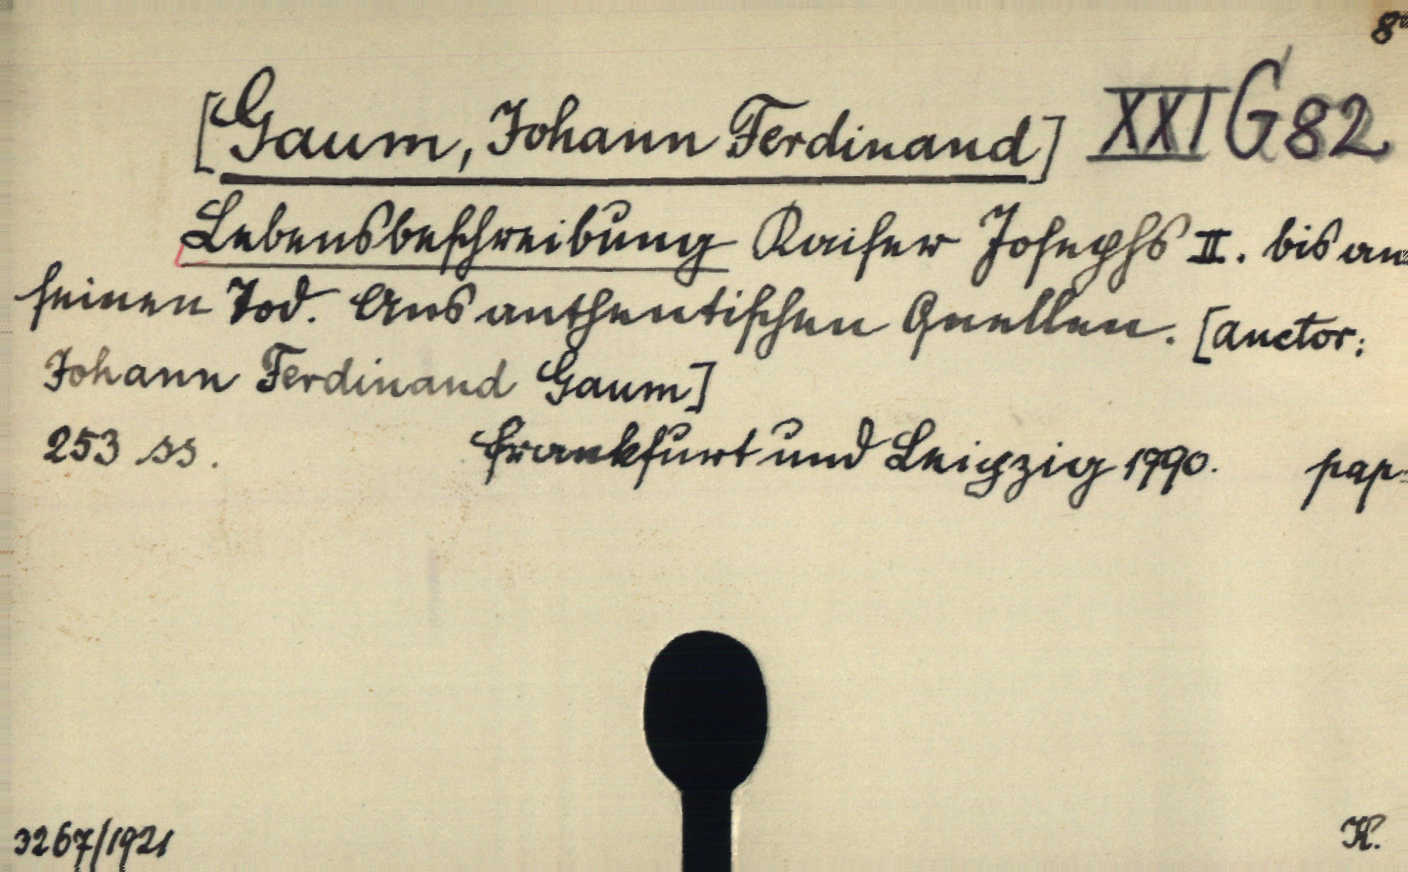 8°
[Gaum, Johann Ferdinand] XXI G 82
Lebensbeschreibung Kaiser Josephs II. bis an
seinen Tod. Aus authentischen Quellen. [auctor:
Johann Ferdinand Gaum]
253 ss. Frankfurt und Leipzig 1790. pap.
3267/1921 K.